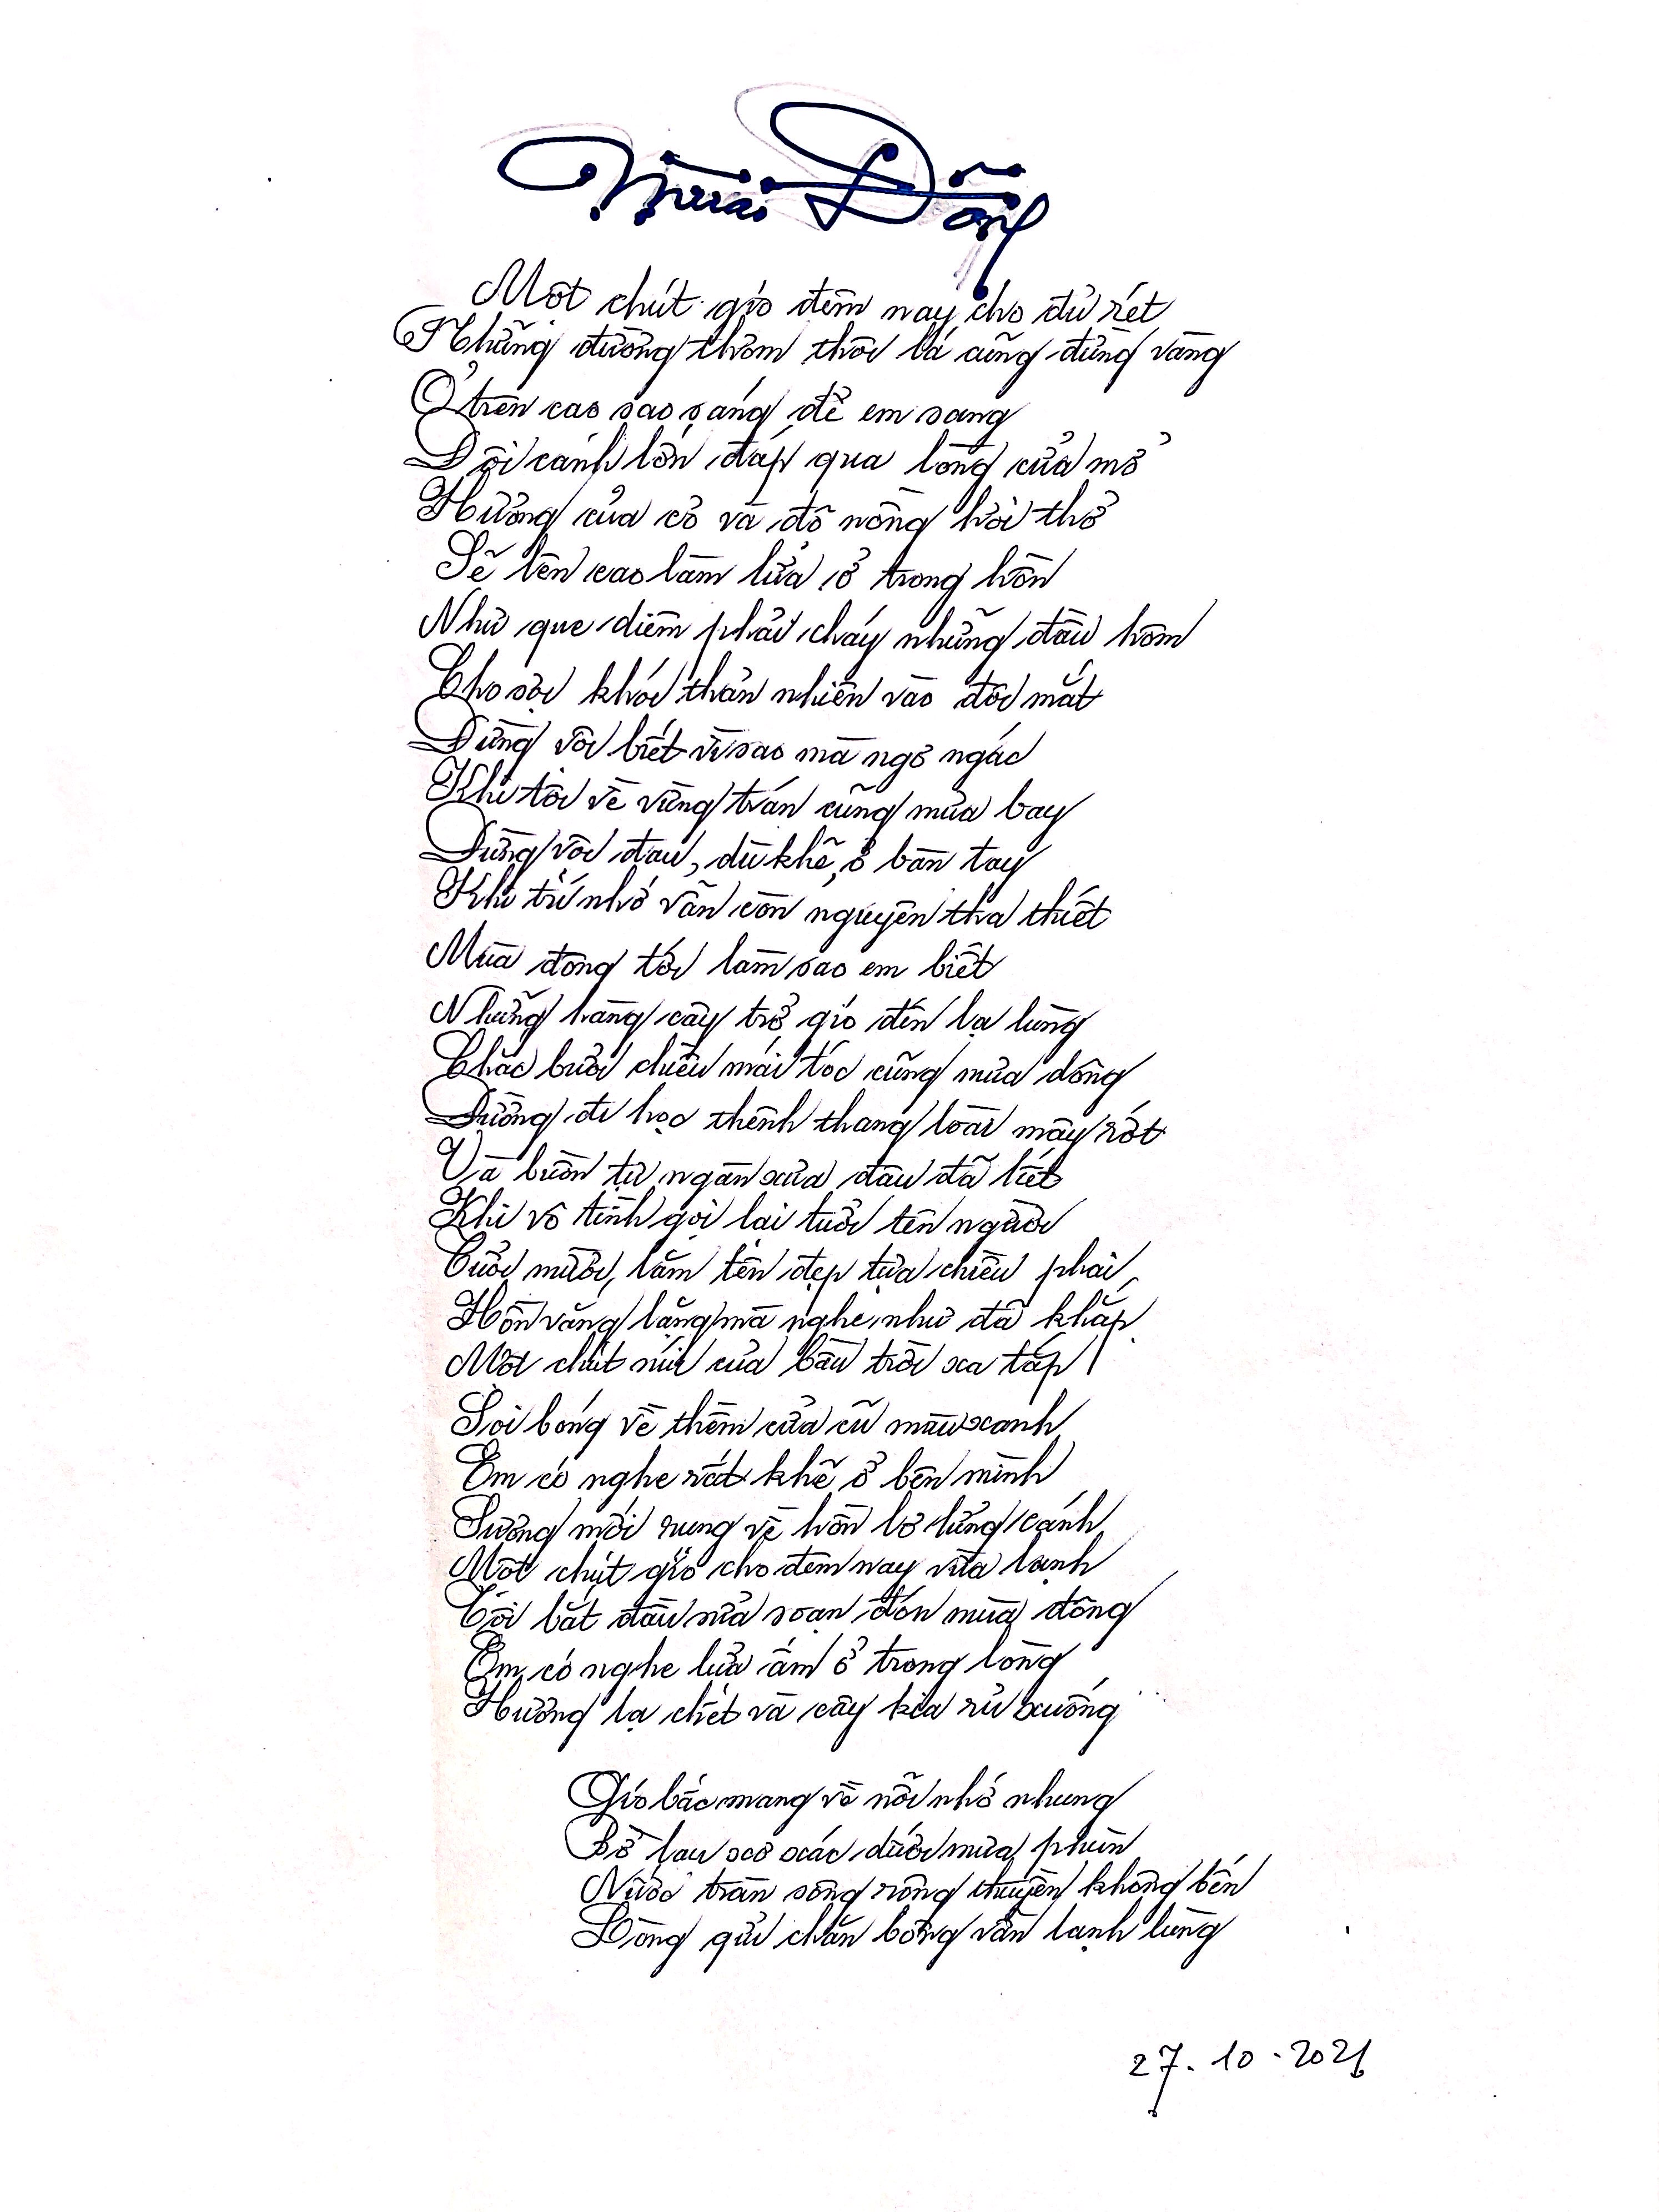 Mùa Đông
Một chút gió đêm nay cho đủ rét
Những đường thơm thôi lá cũng đừng vàng
Ở trên cao sao sáng để em sang
Đôi cánh lớn đáp qua lòng cửa mở
Hương của cỏ và độ nồng hơi thở
Sẽ lên cao làm lửa ở trong hồn
Như que diêm phải cháy những đầu hôm
Cho sợi khói thản nhiên vào đôi mắt
Đừng vội biết vì sao mà ngơ ngác
Khi tôi về vừng trán cũng mưa bay
Đừng vội đau, dù khẽ, ở bàn tay
Khi trí nhớ vẫn còn nguyên tha thiết
Mùa đông tới làm sao em biết
Những hàng cây trở gió đến lạ lùng
Chắc buổi chiều mái tóc cũng mưa dông
Đường đi học thênh thang loài mây rớt
Và buồn tự ngàn xưa đâu đã hết
Khi vô tình gọi lại tuổi tên người
Tuổi mười lăm tên đẹp tựa chiều phai
Hồn vắng lặng mà nghe như đã khắp
Một chút núi của bầu trời xa tắp
Soi bóng về thềm cửa cũ màu xanh
Em có nghe rất khẽ ở bên mình
Sương mới rung về hồn lơ lửng cánh
Một chút gió cho đêm nay vừa lạnh
Tôi bắt đầu sửa soạn đón mùa đông
Em có nghe lửa ấm ở trong lòng
Hương lạ chết và cây kia rủ xuống
Gió bấc mang về nỗi nhớ nhung
Bờ lau xơ xác dưới mưa phùn
Nước tràn sông rộng thuyền không bến
Lòng gửi chăn bông vẫn lạnh lùng
27.10.2021